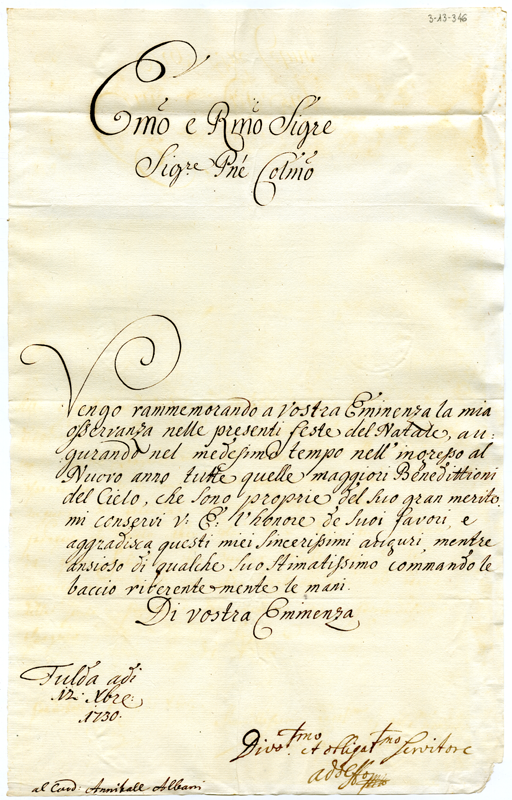 3-13-346
Emo e Rmo Sigre
Sigre Pne Colmo
Vengo rammemorando a Vostra Eminenza la mia
osservanza nelle presenti feste del Natale, au-
gurando nel medesimo tempo nell' ingresso al
Nuovo anno tutte quelle maggiori Benedittioni
del Cielo, che sono proprie del suo gran merito.
mi conservi V: E: l'honore de suoi favori, e
aggradisca questi miei sincerissimi auguri, mentre
ansioso di qualche suo stimatissimo commando le
baccio riverentemente le mani.
Di Vostra Eminenza
Fulda adi
12 Xbre
1730.
Divotmo et obligatmo Servitore
al Card. Annibale Albani